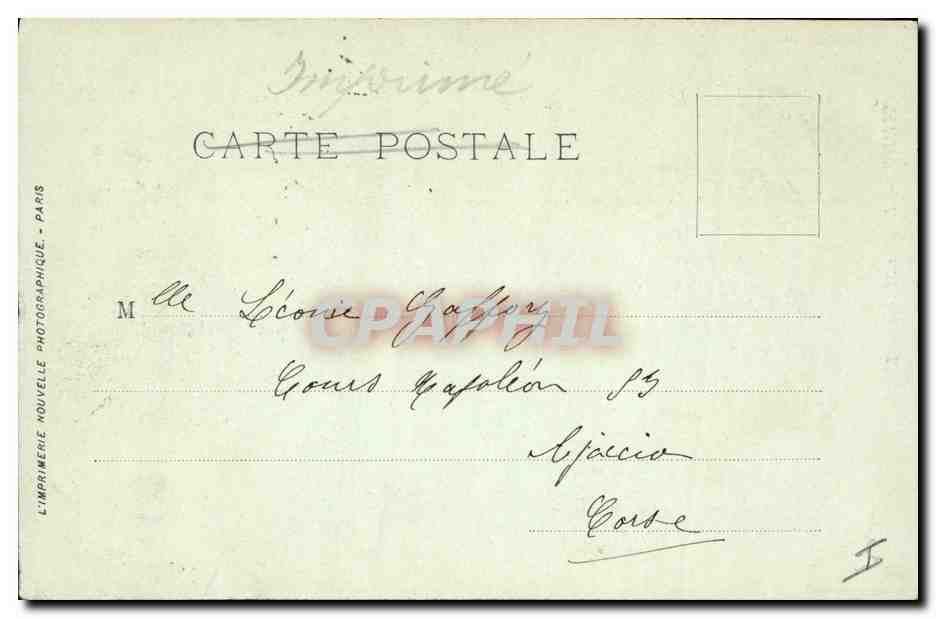 Imprimé
CARTE POSTALE
L'IMPRIMERIE NOUVELLE PHOTOGRAPHIQUE. - PARIS
Mlle Léonie Gaffory
CPAPHIL
Cours Napoléon
Ajaccio
Corse
I